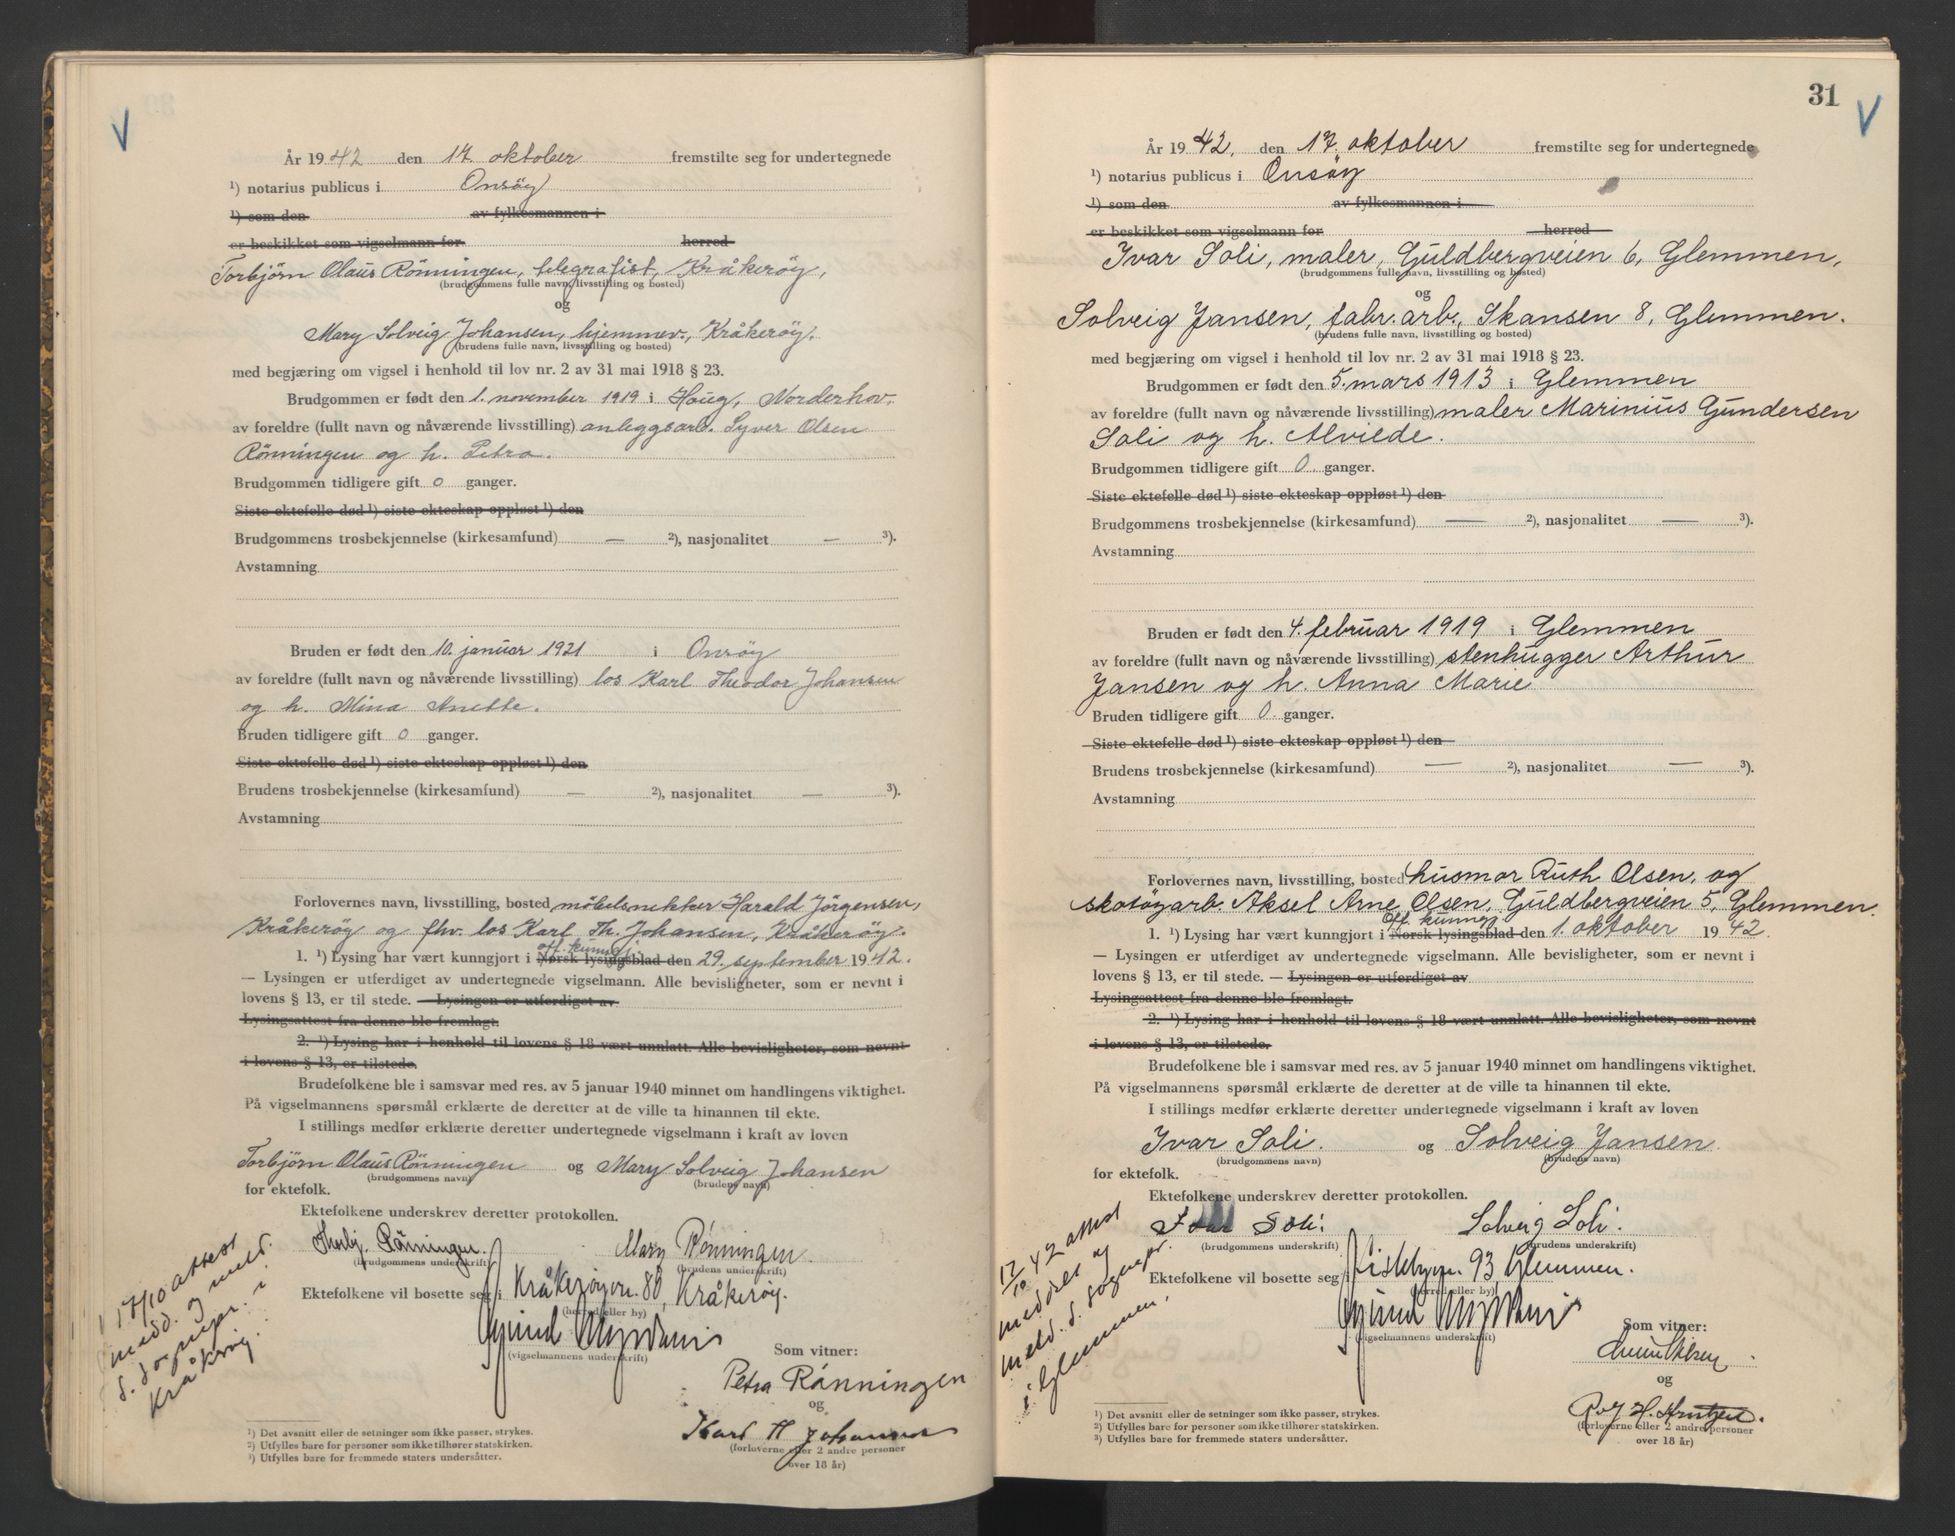 År 1942 den 17. oktober fremstilte seg for undertegnede
¹) notarius publicus i Onsöy
¹) som den av fylkesmannen i
er beskikket som vigselmann for herred
Torbjörn Olaus Rönningen, telegrafist, Kråkeröy,
(brudgommens fulle navn, livsstilling og bosted)
og
Mary Solveig Johansen, hjemmev., Kråkeröy.
(brudens fulle navn, livsstilling og bosted)
med begjæring om vigsel i henhold til lov nr. 2 av 31 mai 1918 § 23.
Brudgommen er født den 1. november 1919 i Haug, Norderhov.
av foreldre (fullt navn og nåværende livsstilling) anleggsarb. Syver Olsen
Rönningen og h. Petra.
Brudgommen tidligere gift 0 ganger.
Siste ektefelle død ¹) siste ekteskap oppløst ¹) den
Brudgommens trosbekjennelse (kirkesamfund) — ²), nasjonalitet — ³).
Avstamning
Bruden er født den 10. januar 1921 i Onsöy
av foreldre (fullt navn og nåværende livsstilling) los Karl Theodor Johansen
og h. Mina Anette.
Bruden tidligere gift 0 ganger.
Siste ektefelle død ¹) siste ekteskap oppløst ¹) den
Brudens trosbekjennelse (kirkesamfund) — ²), nasjonalitet — ³).
Avstamning
Forlovernes navn, livsstilling, bosted möbelsnekker Harald Jörgensen,
Kråkeröy og fhv. los Karl Th. Johansen, Kråkeröy.
off. kunngj.
1. ¹) Lysing har vært kunngjort i Norsk lysingsblad den 29. september 1942.
— Lysingen er utferdiget av undertegnede vigselmann. Alle bevisligheter, som er nevnt i
lovens § 13, er til stede. — Lysingen er utferdiget av
Lysingsattest fra denne ble fremlagt.
2. ¹) Lysing har i henhold til lovens § 18 vært unnlatt. Alle bevisligheter, som nevnt
i lovens § 13, er tilstede.
Brudefolkene ble i samsvar med res. av 5 januar 1940 minnet om handlingens viktighet.
På vigselmannens spørsmål erklærte de deretter at de ville ta hinannen til ekte.
I stillings medfør erklærte deretter undertegnede vigselmann i kraft av loven
Torbjörn Olaus Rönningen og Mary Solveig Johansen
(brudgommens navn) (brudens navn)
for ektefolk.
Ektefolkene underskrev deretter protokollen.
Thorbj. Rönningen. Mary Rónningen.
(brudgommens underskrift) (brudens underskrift)
Ektefolkene vil bosette seg i Kråkerøyvn. 80, Kråkerøy.
(herred eller by)
(vigselmannens underskrift)
Som vitner:
Petra Rónningen
og
Karl Th Johansen
(forloverne eller 2 andre personer
over 18 år)
17/10 attest
medd. og meld.
s. sognepr. i
Kråkröy.
¹) Det avsnitt eller de setninger som ikke passer, strykes.
²) Utfylles bare for personer som ikke tilhører statskirken.
³) Utfylles bare for fremmede staters undersåtter.
31
År 1942. den 17. oktober fremstilte seg for undertegnede
¹) notarius publicus i Onsöy
¹) som den av fylkesmannen i
er beskikket som vigselmann for herred
Ivar Soli, maler, Guldbergveien 6, Glemmen,
(brudgommens fulle navn, livsstilling og bosted)
og
Solveig Jansen, fabr.arb., Skansen 8, Glemmen.
(brudens fulle navn, livsstilling og bosted)
med begjæring om vigsel i henhold til lov nr. 2 av 31 mai 1918 § 23.
Brudgommen er født den 5. mars 1913 i Glemmen
av foreldre (fullt navn og nåværende livsstilling) maler Marinius Gundersen
Soli og h. Alvilde.
Brudgommen tidligere gift 0 ganger.
Siste ektefelle død ¹) siste ekteskap oppløst ¹) den
Brudgommens trosbekjennelse (kirkesamfund) — ²), nasjonalitet — ³).
Avstamning
Bruden er født den 4. februar 1919 i Glemmen
av foreldre (fullt navn og nåværende livsstilling) stenhugger Arthur
Jansen og h. Anna Marie
Bruden tidligere gift 0. ganger.
Siste ektefelle død ¹) siste ekteskap oppløst ¹) den
Brudens trosbekjennelse (kirkesamfund) — ²), nasjonalitet — ³).
Avstamning
Forlovernes navn, livsstilling, bosted husmor Ruth Olsen, og
skotöyarb. Aksel Arne Olsen, Guldbergveien 5, Glemmen.
off. kunngj.
1. ¹) Lysing har vært kunngjort i Norsk lysingsblad den 1. oktober 1942.
— Lysingen er utferdiget av undertegnede vigselmann. Alle bevisligheter, som er nevnt i
lovens § 13, er til stede. — Lysingen er utferdiget av
Lysingsattest fra denne ble fremlagt.
2. ¹) Lysing har i henhold til lovens § 18 vært unnlatt. Alle bevisligheter, som nevnt
i lovens § 13, er tilstede.
Brudefolkene ble i samsvar med res. av 5 januar 1940 minnet om handlingens viktighet.
På vigselmannens spørsmål erklærte de deretter at de ville ta hinannen til ekte.
I stillings medfør erklærte deretter undertegnede vigselmann i kraft av loven
Ivar Soli. og Solveig Jansen.
(brudgommens navn) (brudens navn)
for ektefolk.
Ektefolkene underskrev deretter protokollen.
Ivar Soli. Solveig Soli.
(brudgommens underskrift) (brudens underskrift)
Ektefolkene vil bosette seg i Riskebyvn. 93, Glemmen.
(herred eller by)
(vigselmannens underskrift)
Som vitner:
og
Rolf H. Arntzen.
(forloverne eller 2 andre personer
over 18 år)
17/10 42 attest
meddelt og
meld. s. sognepr.
i Glemmen.
¹) Det avsnitt eller de setninger som ikke passer, strykes.
²) Utfylles bare for personer som ikke tilhører statskirken.
³) Utfylles bare for fremmede staters undersåtter.